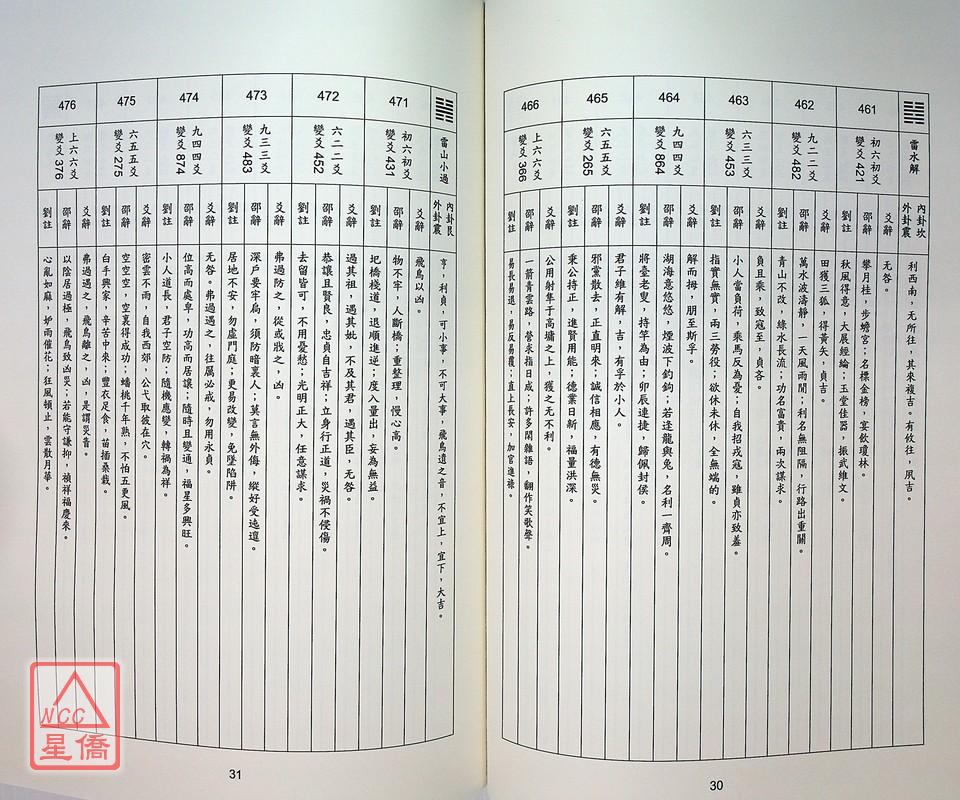 雷水解
內卦坎
外卦震
利西南，无所往，其來複吉。有攸往，夙吉。
461
初六初爻
變爻 421
爻辭
无咎。
邵辭
攀月桂，步蟾宮；名標金榜，宴飲瓊林。
劉註
秋風得意，大展經綸；玉堂佳器，振武維文。
462
九二二爻
變爻 482
爻辭
田獲三狐，得黃矢，貞吉。
邵辭
萬水波濤靜，一天風雨閒；利名無阻隔，行路出重關。
劉註
青山不改，綠水長流；功名富貴，兩次謀求。
463
六三三爻
變爻 453
爻辭
負且乘，致寇至，貞吝。
邵辭
小人當負荷，乘馬反為憂；自我招戎寇，雖貞亦致羞。
劉註
指實無實，兩三勞役；欲休未休，全無端的。
464
九四四爻
變爻 864
爻辭
解而拇，朋至斯孚。
邵辭
湖海意悠悠，煙波下釣鉤；若逢龍與兔，名利一齊周。
劉註
將臺老叟，持竿為由；卯辰連捷，歸佩封侯。
465
六五五爻
變爻 265
爻辭
君子維有解，吉，有孚於小人。
邵辭
邪黨散去，正直明來；誠信相應，有德無災。
劉註
秉公持正，進賢用能；德業日新，福量洪深。
466
上六六爻
變爻 366
爻辭
公用射隼于高墉之上，獲之无不利。
邵辭
一箭青雲路，營求指日成；許多閒雜語，翻作笑歌聲。
劉註
易長易退，易反易覆；直上長安，加官進祿。
30
雷山小過
內卦艮
外卦震
亨，利貞，可小事，不可大事，飛鳥遺之音，不宜上，宜下，大吉。
471
初六初爻
變爻 431
爻辭
飛鳥以凶。
邵辭
物不牢，人斷橋；重整理，慢心高。
劉註
圯橋棧道，退順進逆；度入量出，妄為無益。
472
六二二爻
變爻 452
爻辭
過其祖，遇其妣，不及其君，遇其臣，无咎。
邵辭
恭讓且賢良，忠貞自吉祥；立身行正道，災禍不侵傷。
劉註
去留皆可，不用憂愁；光明正大，任意謀求。
473
九三三爻
變爻 483
爻辭
弗過防之，從或戕之，凶。
邵辭
深戶要牢扃，須防暗裏人；莫言無外侮，縱好受迍邅。
劉註
居地不安，勿虛門庭；更易改變，免墜陷阱。
474
九四四爻
變爻 874
爻辭
无咎。弗過遇之，往厲必戒，勿用永貞。
邵辭
位高而處卑，功高而居讓；隨時且變通，福星多興旺。
劉註
小人道長，君子空防；隨機應變，轉禍為祥。
475
六五五爻
變爻 275
爻辭
密雲不雨，自我西郊，公弋取彼在穴。
邵辭
空空空，空裏得成功；蟠桃千年熟，不怕五更風。
劉註
白手興家，辛苦中來；豐衣足食，苗插桑栽。
476
上六六爻
變爻 376
爻辭
弗遇過之，飛鳥離之，凶，是謂災眚。
邵辭
以陰居過極，飛鳥致凶災；若能守謙抑，禎祥福慶來。
劉註
心亂如麻，妒雨催花；狂風頓止，雲散月華。
31
NCC
星僑